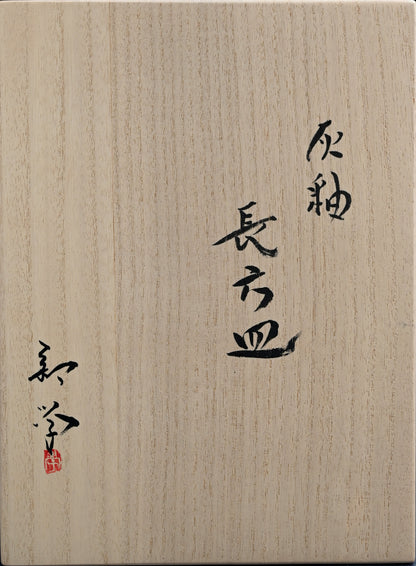 灰釉
長方皿